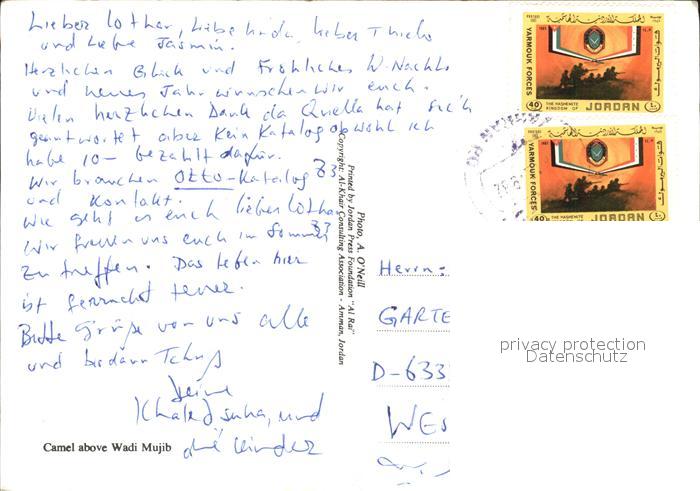 Lieber Lothar, Liebe Linda, lieber
und Liebe Jasmin.
Herzlichen Glück und Fröhliches W-Nachts
und neues Jahr wünschen wir euch.
Vielen herzlichen Dank da Quella hat sich
geantwortet aber kein Katalog obwohl ich
habe 10- bezahlt dafür.
Wir brauchen OTTO-Katalog
und Kontakt.
Wie geht es euch lieber Lothar
Wir freuen uns euch im Sommer
zu treffen. Das leben hier
ist teuer.
Bitte Grüße von uns alle
und
deine
Khaled, und
die Kinder
Camel above Wadi Mujib
Copyright: Al-Khair Consulting Association - Amman, Jordan
Printed by Jordan Press Foundation "Al Rai"
Photo, A. O'Neill
YARMOUK FORCES
المملكة الاردنية الهاشمية
قوات اليرموك
40
THE HASHEMITE
KINGDOM OF
JORDAN
YARMOUK FORCES
المملكة الاردنية الهاشمية
قوات اليرموك
40
THE HASHEMITE
JORDAN
Herrn:
GARTE
D-633
WES
privacy protection
Datenschutz